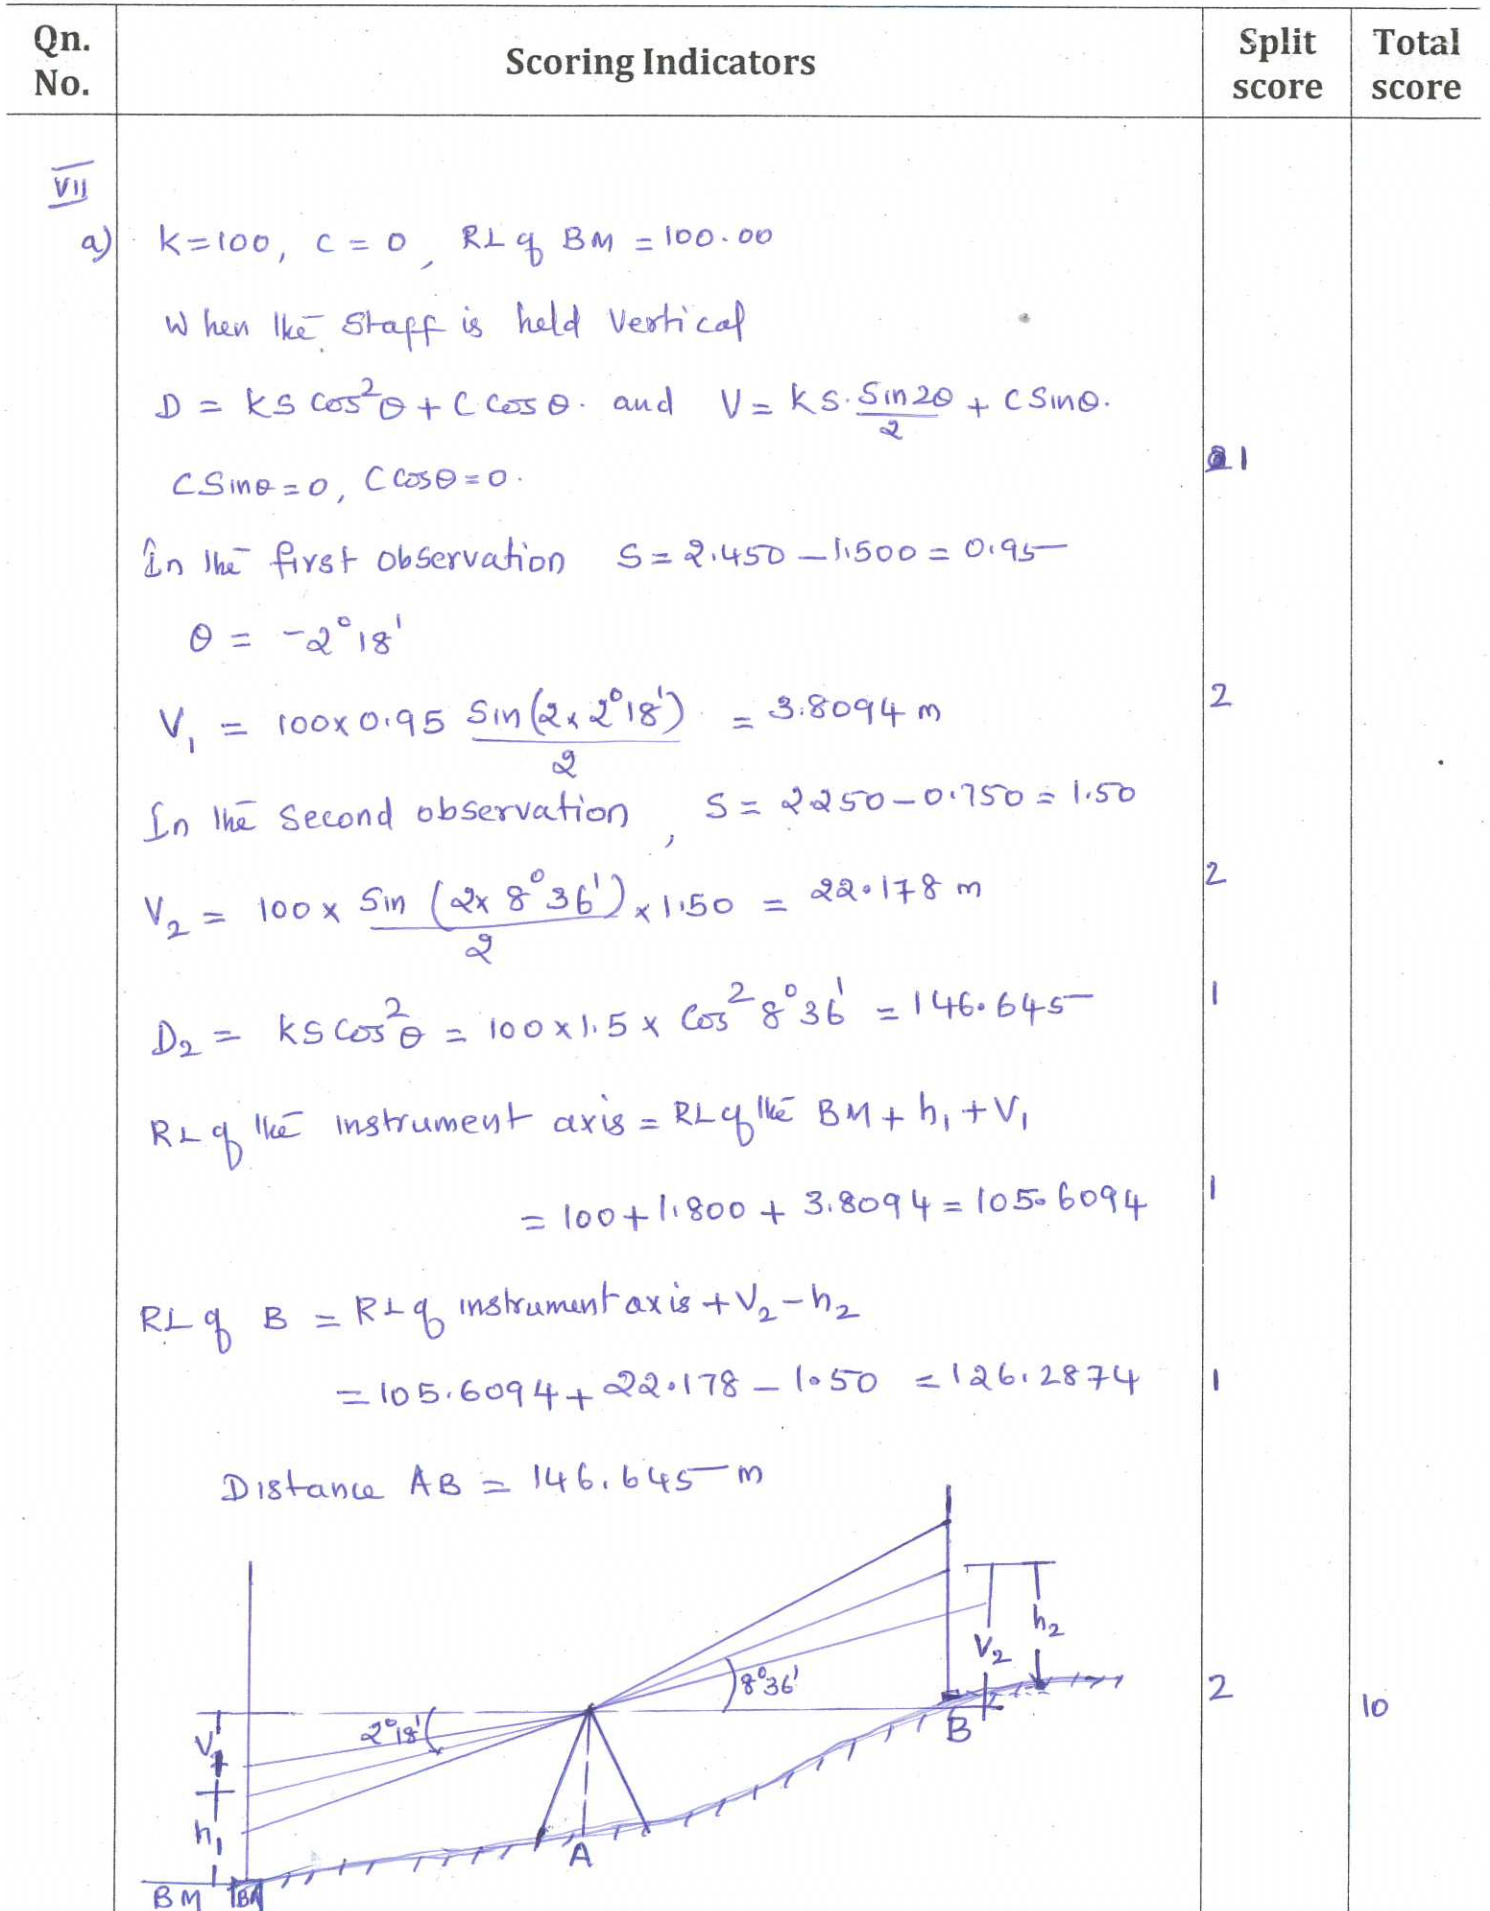 Qn. No. Scoring Indicators Split score Total score
VII
a) K=100, C = 0, RL of BM = 100.00
When the staff is held vertical
D = KS Cos²θ + C Cos θ. and V = KS. Sin2θ/2 + C Sinθ.
1
C Sinθ = 0, C Cosθ = 0.
In the first observation S = 2.450 – 1.500 = 0.95
θ = -2°18'
V₁ = 100 x 0.95 Sin(2x 2°18')/2 = 3.8094 m 2
In the Second observation, S = 2250 – 0.750 = 1.50
V₂ = 100 x Sin (2x 8°36')/2 x 1.50 = 22.178 m 2
D₂ = KS Cos²θ = 100 x 1.5 x Cos² 8°36' = 146.645 1
RL of the instrument axis = RL of the BM + h₁ + V₁
= 100 + 1.800 + 3.8094 = 105.6094 1
RL of B = RL of instrument axis + V₂ – h₂
= 105.6094 + 22.178 – 1.50 = 126.2874 1
Distance AB = 146.645 m
h₂
V₂
8°36'
2 10
V₁
2°18'
B
h₁
A
BM BM